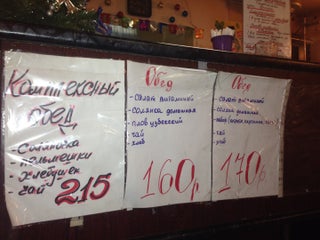 Комплексный
обед
- Соляночка
- пельмешки
- хлебушек
- чай 215
Обед
- салат витаминный
- солянка домашняя
- плов узбекский
- чай
- хлеб
160р
Обед
- салат витаминный
- солянка домашняя
- чай
- хлеб
170р